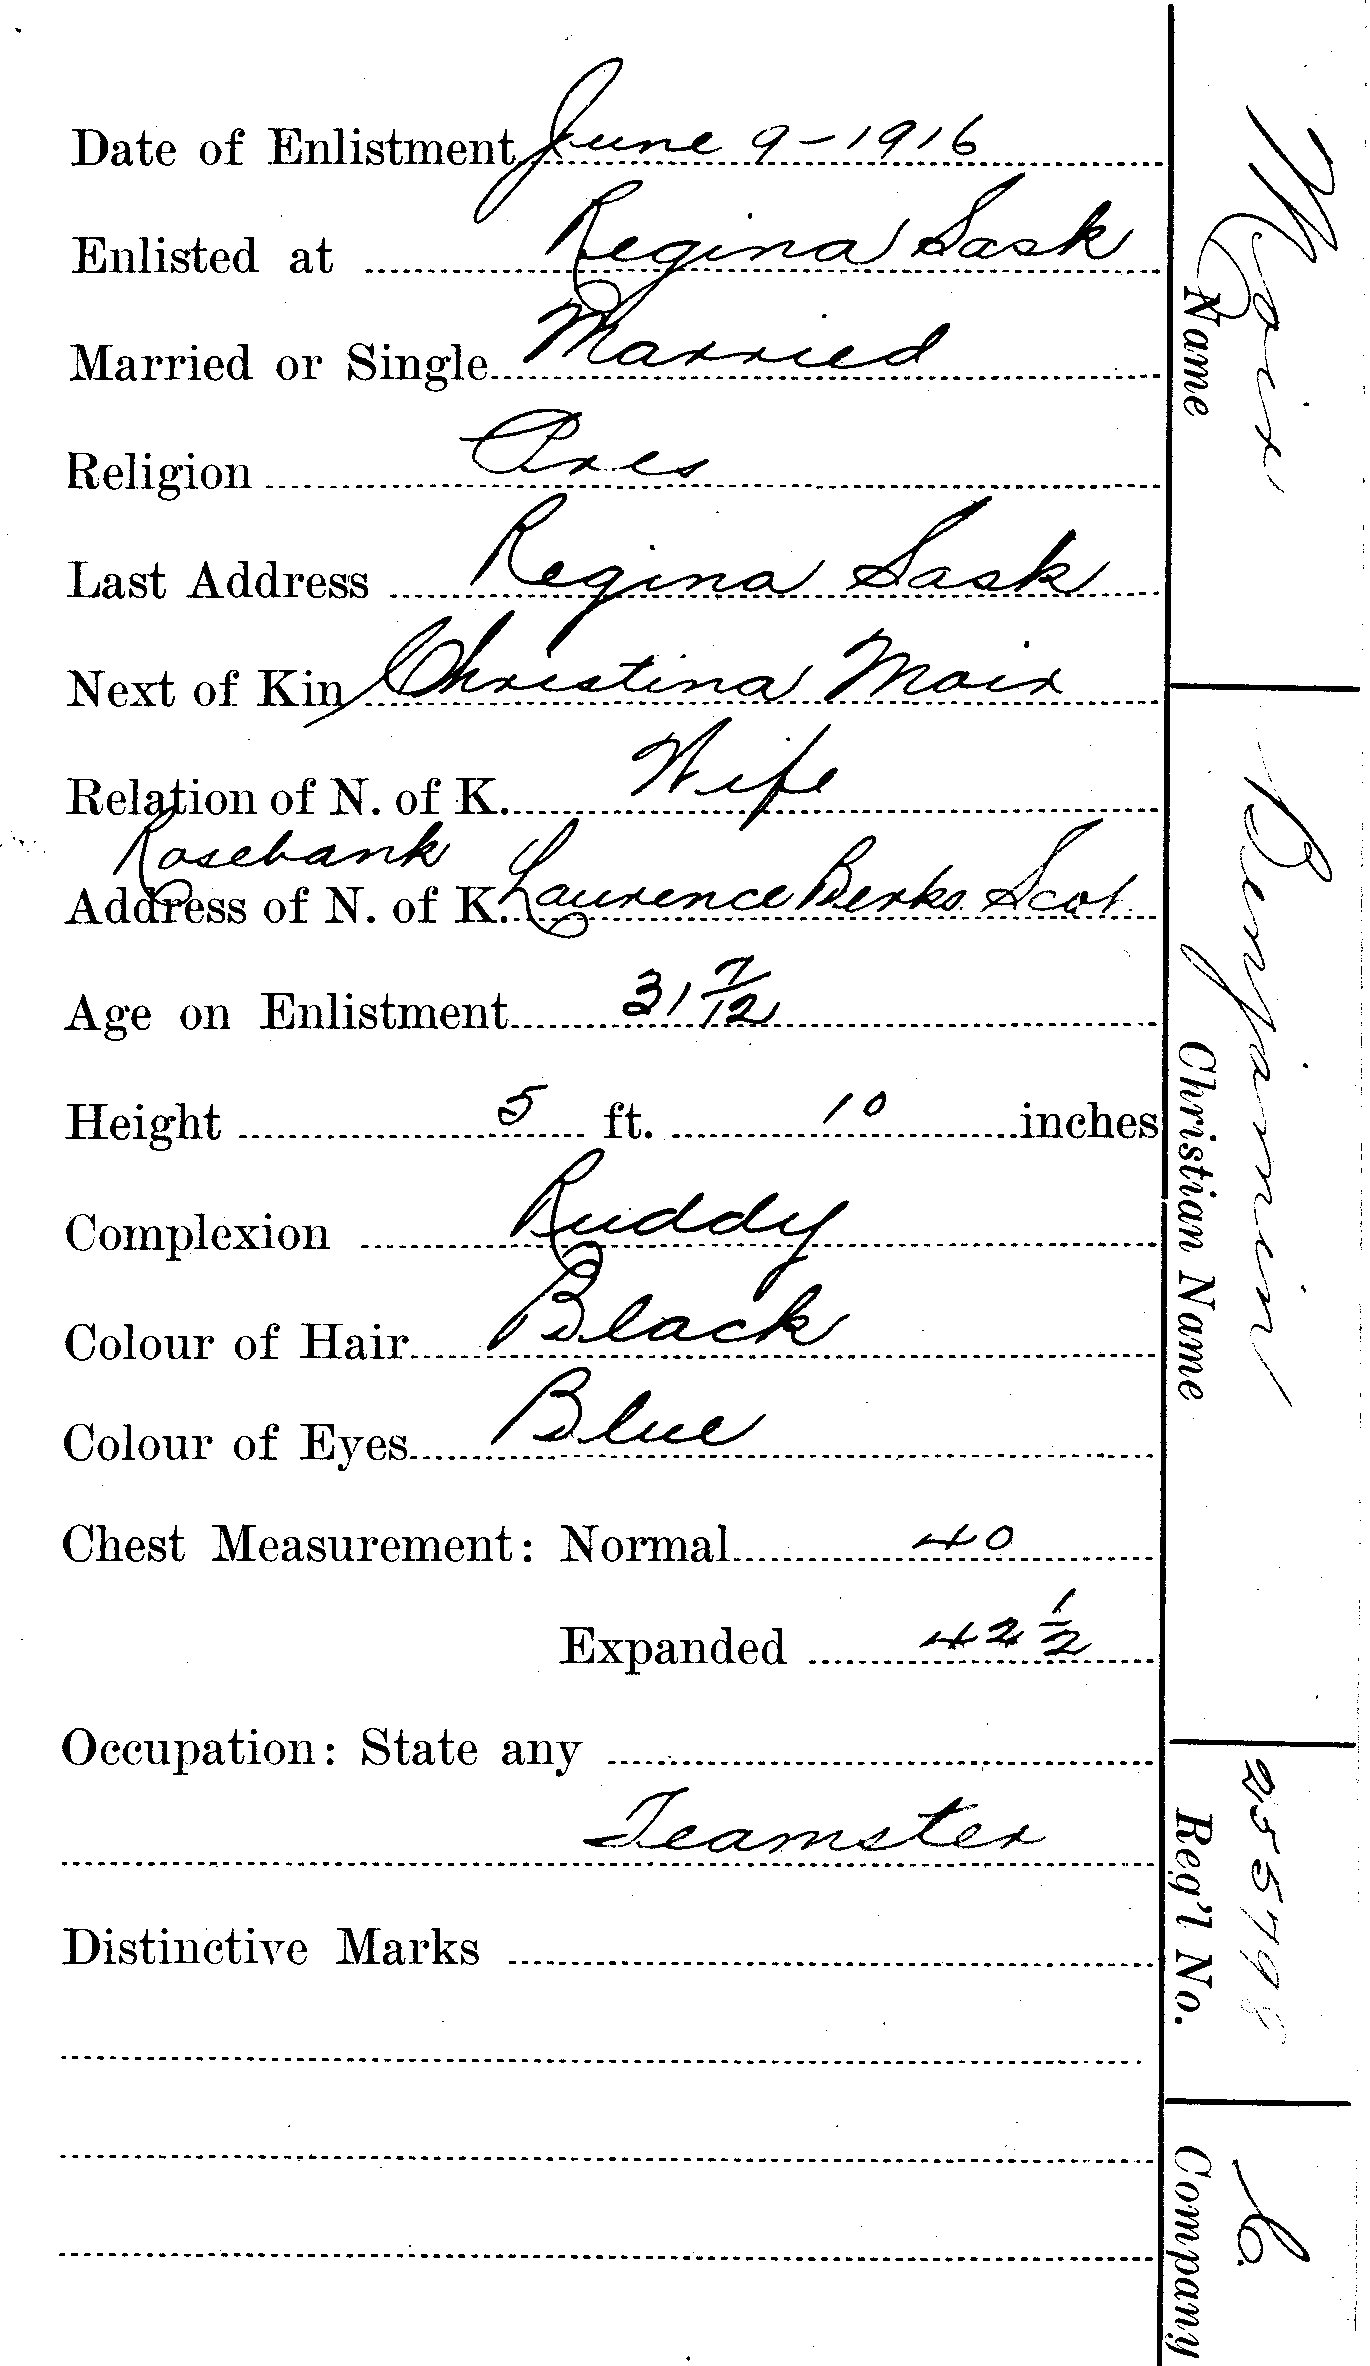 Date of Enlistment June 9-1916
Enlisted at Regina Sask
Married or Single Married
Religion Pres
Last Address Regina Sask
Next of Kin Christina Moir
Relation of N. of K. Wife
Rosebank
Address of N. of K. Laurence Berks. Scot
Age on Enlistment 31 7/12
Height 5 ft. 10 inches
Complexion Ruddy
Colour of Hair Black
Colour of Eyes Blue
Chest Measurement: Normal 40
Expanded 42 1/2
Occupation: State any
Teamster
Distinctive Marks
Moir
Name
Benjamin
Christian Name
255798
Reg'l No.
C.
Company